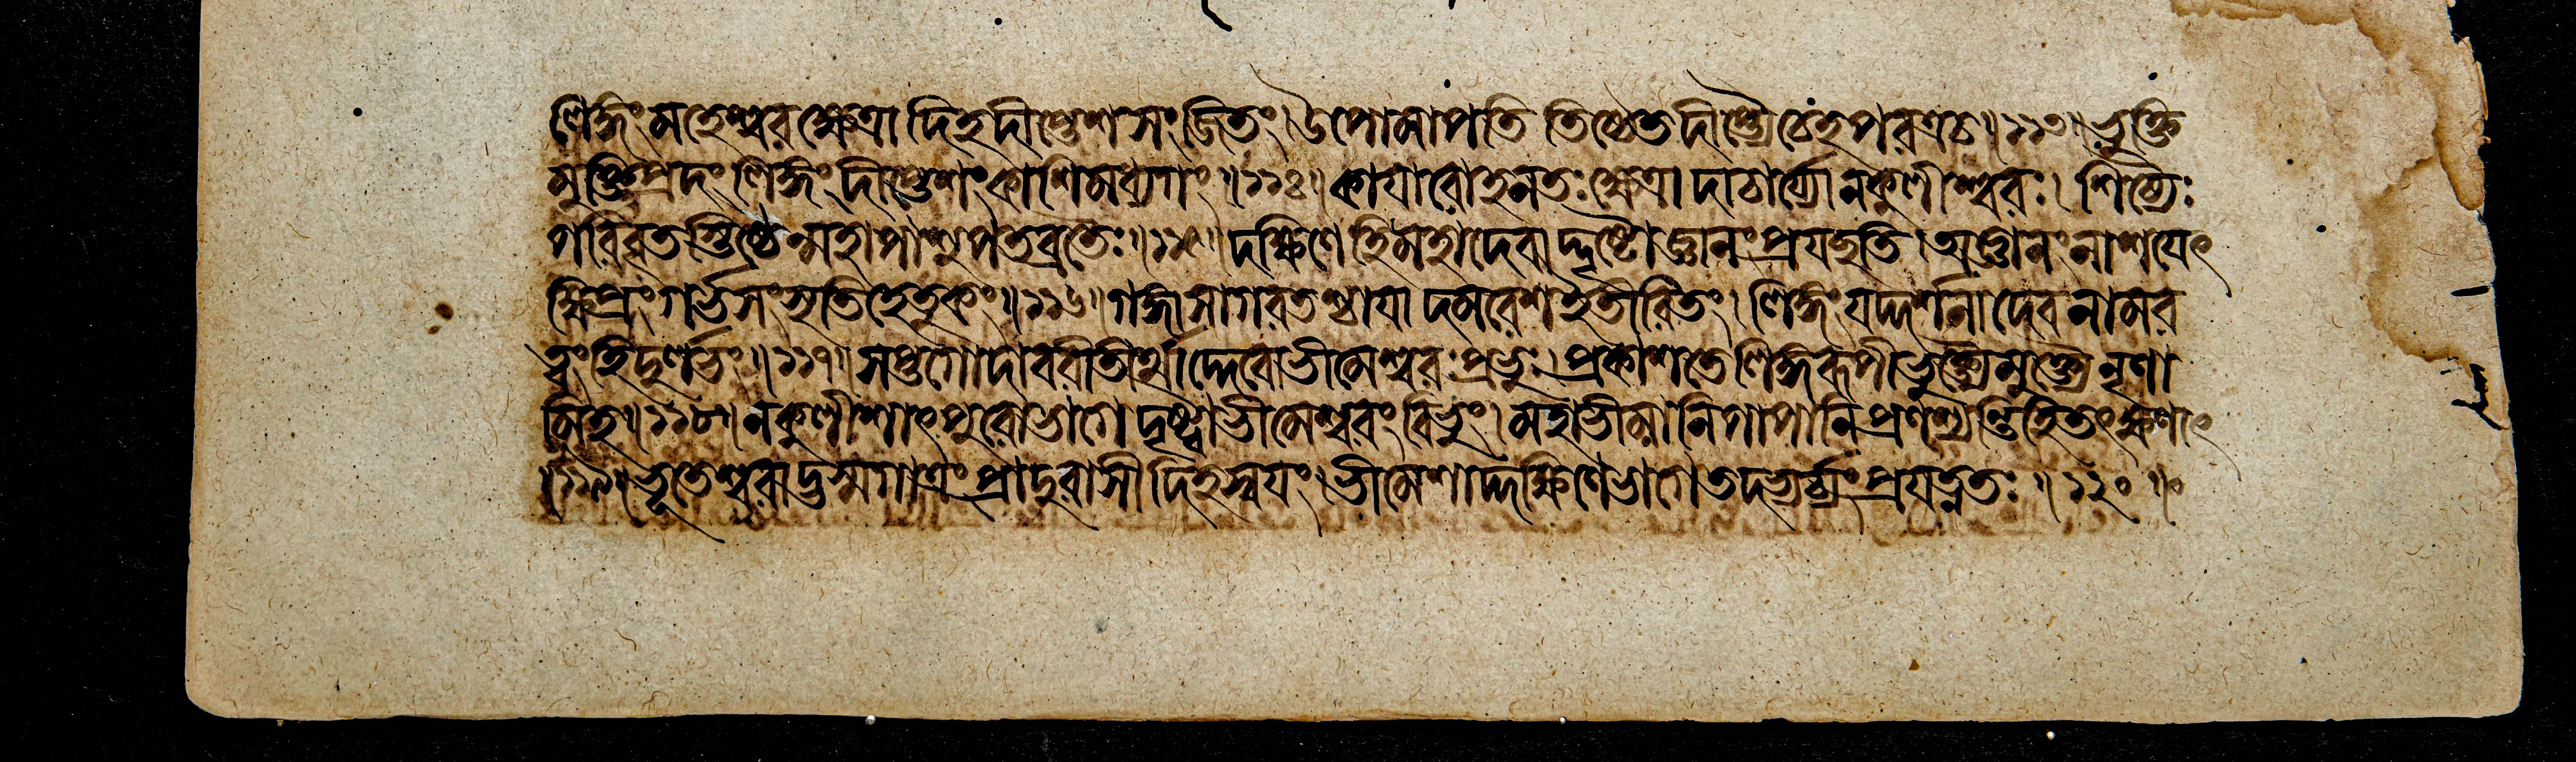 লিঙ্গং মহেশ্বরক্ষেত্রা দিহদীপ্তেশসংজ্ঞিতং। উপোমাপতি তিষ্ঠেত দীপ্ত্যৈ চেহ পরত্রচ॥১১৩॥ ভুক্তি
মুক্তিপ্রদং লিঙ্গং দীপ্তেশং কাশিমধ্যগং॥১১৪॥ কায়ারোহনতঃ ক্ষেত্রা দাচার্য্যো নকুলীশ্বরঃ। শিষ্যৈঃ
পরিবৃতস্তিষ্ঠেন্মহাপাশুপতব্রতৈঃ॥১১৫॥ দক্ষিণে হি মহাদেবা দ্দৃষ্টো জ্ঞানং প্রযচ্ছতি। অজ্ঞানং নাশয়েৎ
ক্ষিপ্রং গর্ভসংসৃতিহেতুকং॥১১৬॥ গঙ্গাসাগরতশ্চায়া দমরেশইতীরিতং। লিঙ্গং যদ্দর্শনাদেব নামর
ত্বং হি দুর্লভং॥১১৭॥ সপ্তগোদাবরীতীর্থাদ্দেবো ভীমেশ্বরঃ প্রভুঃ। প্রকাশতে লিঙ্গরূপী ভুক্ত্যৈ মুক্ত্যৈ নৃণা
মিহ॥১১৮॥ নকুলীশাৎ পুরোভাগে দৃষ্ট্বা ভীমেশ্বরং বিভুং। মহাভীমানি পাপানি প্রণশ্যন্তি হি তৎক্ষণাৎ
॥১১৯॥ ভূতেশ্বরাদ্ভস্মগাত্রং প্রাদুরাসী দিহ স্বয়ং। ভীমেশাদ্দক্ষিণেভাগে তদভ্যর্চ্চ্যং প্রযত্নতঃ॥১২০॥